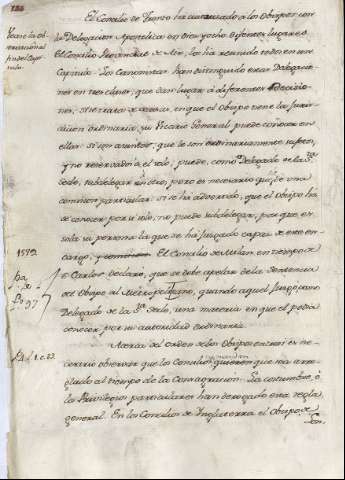 188
El Concilio de Trento ha autorizado a los Obispos con
la Delegacion Apostolica en dieciocho diferentes lugares
El Concilio Provincial de Aix, los ha reunido todos en un
Capitulo. Los Canonistas han distinguido estas Delegacio-
nes en tres clases, que dan lugar á diferentes Decisio-
nes, si se trata de cosas, en que el Obispo tiene la Juris-
diccion ordinaria, su Vicario General puede conocer en
ellas: si son asuntos, que le son ordinariamente sujetos,
y no reservados á el solo, puede, como Delegado de la Sta.
Sede, subdelegar en otro, pero es necesario que se de una
comision particular: si se há advertido, que el Obispo ha
de conocer por si solo, no puede subdelegar, por que es
sola su persona la que se há juzgado capaz de este en-
cargo. El Concilio de Milan en tiempo de
S. Carlos declaró, que se debe apelar de la Sentencia
del Obispo al Metropolitano, quando aquel juzga como
Delegado de la Sta. Sede, una materia en que el podia
conocer por su autoridad ordinaria.
Acerca del orden de los Obispos entre si es ne-
cesario observar que los Concilios quieren que sea arre-
glado al tiempo de la Consagracion. La costumbre, ó
los Privilegios particulares han derogado esta regla
general. En los Concilios de Inglaterra el Obispo de
Lon.